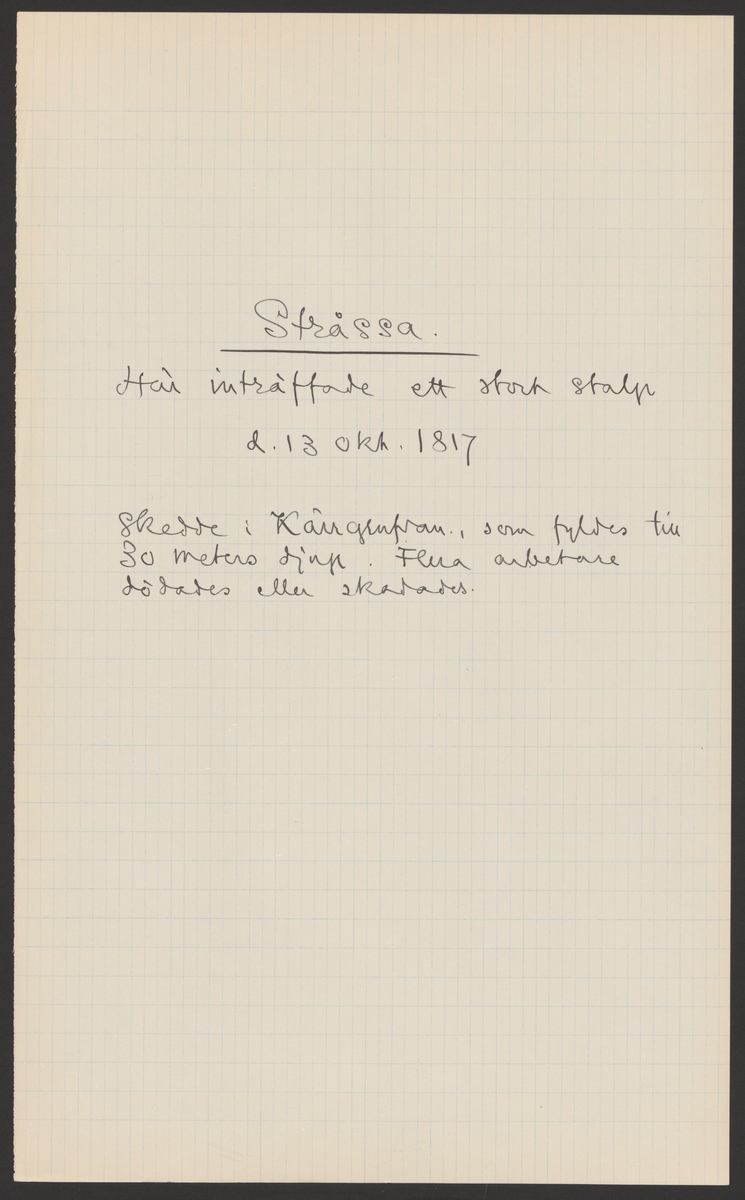 Stråssa.
Här inträffade ett stort stalp
d. 13 okt. 1817
Skedde i som fyldes till
30 meters djup. Flera arbetare
dödades eller skadades.